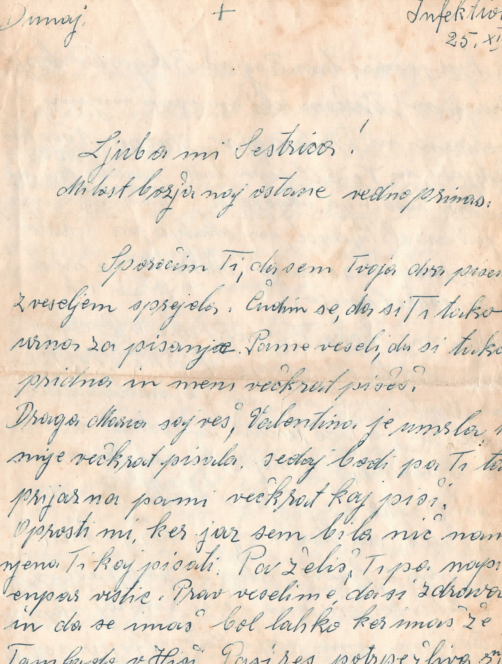 Dunaj. +
25. XI
Ljuba mi Sestrica!
Milost božja naj ostane vedno prinas:
Sporočim Ti, da sem Tvoja dva pisem
z veseljem sprejela. Čudim se, da si Ti tako
urna za pisanje. Pame veseli, da si tako
pridna in meni večkrat pišeš.
Draga Maria saj veš, Valentina je umrla,
mije večkrat pisala. sedaj bodi pa Ti
prijazna pa mi večkrat kaj piši.
Oprosti mi, ker jaz sem bila nič nam
njena Ti kaj pisati. Pa želiš, Ti pa napi
enpar vrstic. Prav veselime, da si zdrava
in da se imaš bol lahko ker imaš že
v Hiši